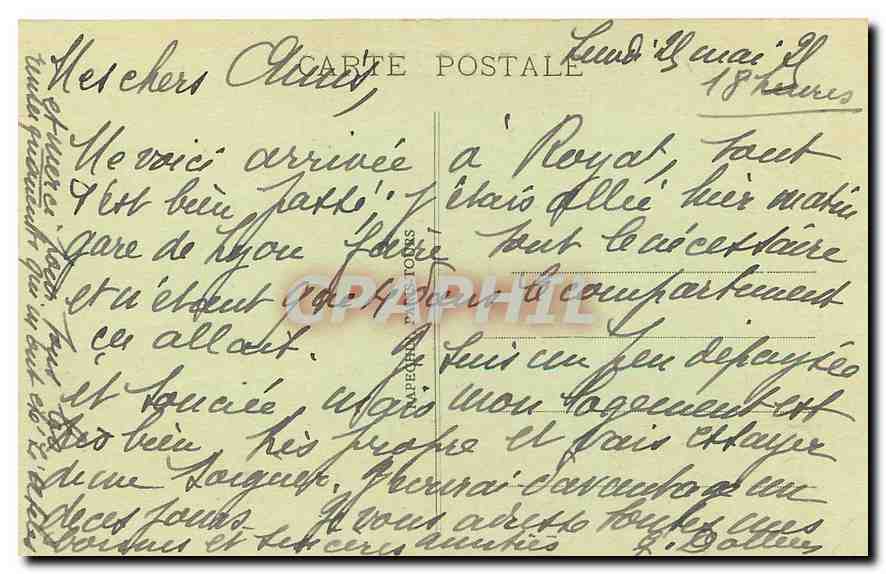 CARTE POSTALE
Lundi 25 mai 25
18 heures
Mes chers Amis,
Me voici arrivée à Royat, tout
s'est bien passé. J'étais allée hier matin
gare de Lyon faire tout le nécessaire
et n'étant que 4 dans le compartiment
ça allait. Je suis un peu dépaysée
et souciée mais mon logement est
très bien très propre et vais essayer
de me soigner. J'écrirai davantage un
de ces jours. Je vous adresse toutes mes
bonnes et sincères amitiés
et merci pour tout les
CAPHIL